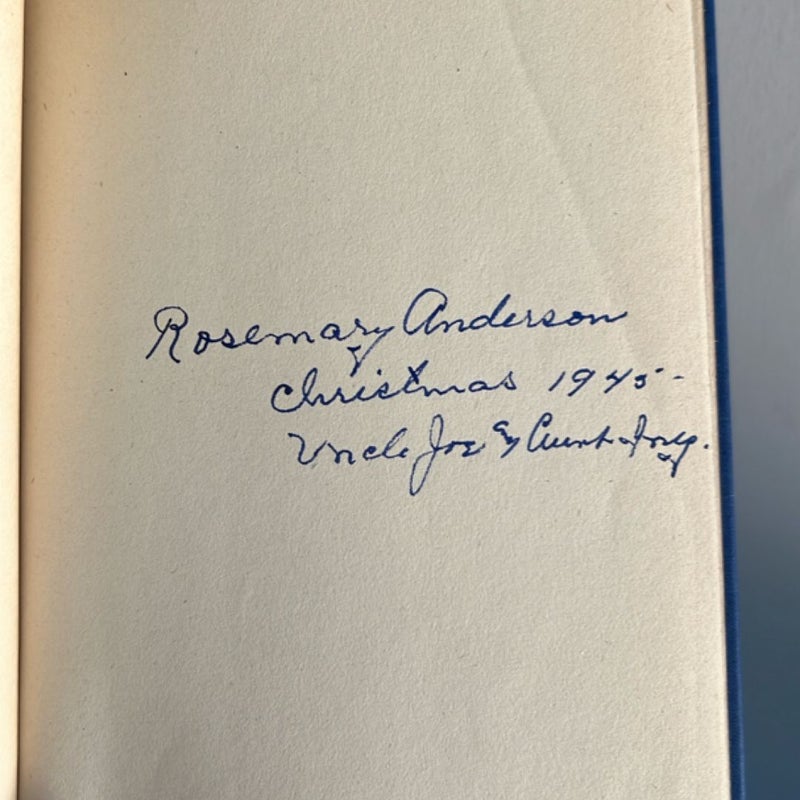 Rosemary Anderson
Christmas 1945-
Uncle Joe & Aunt